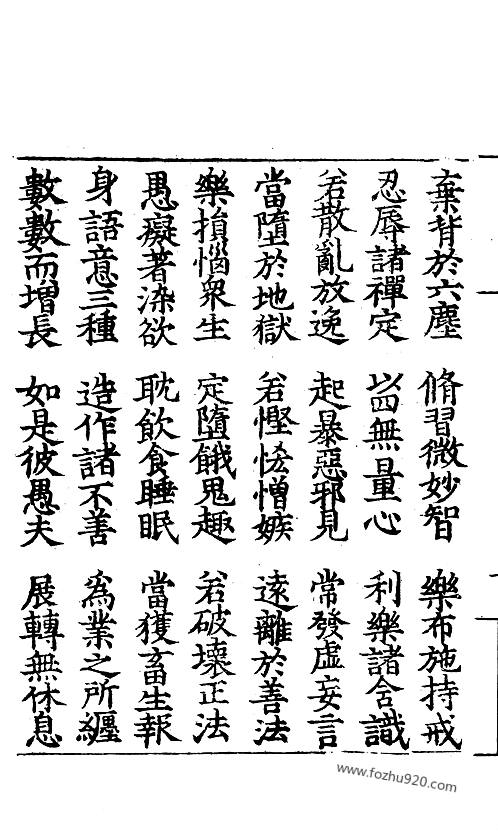 棄背於六塵　脩習微妙智　樂布施持戒
忍辱諸禪定　以四無量心　利樂諸含識
若散亂放逸　起暴惡邪見　常發虛妄言
當墮於地獄　若慳悋憎嫉　遠離於善法
樂損惱衆生　定墮餓鬼趣　若破壞正法
愚癡著染欲　耽飲食睡眠　當獲畜生報
身語意三種　造作諸不善　爲業之所纏
數數而增長　如是彼愚夫　展轉無休息
www.fozhu920.com